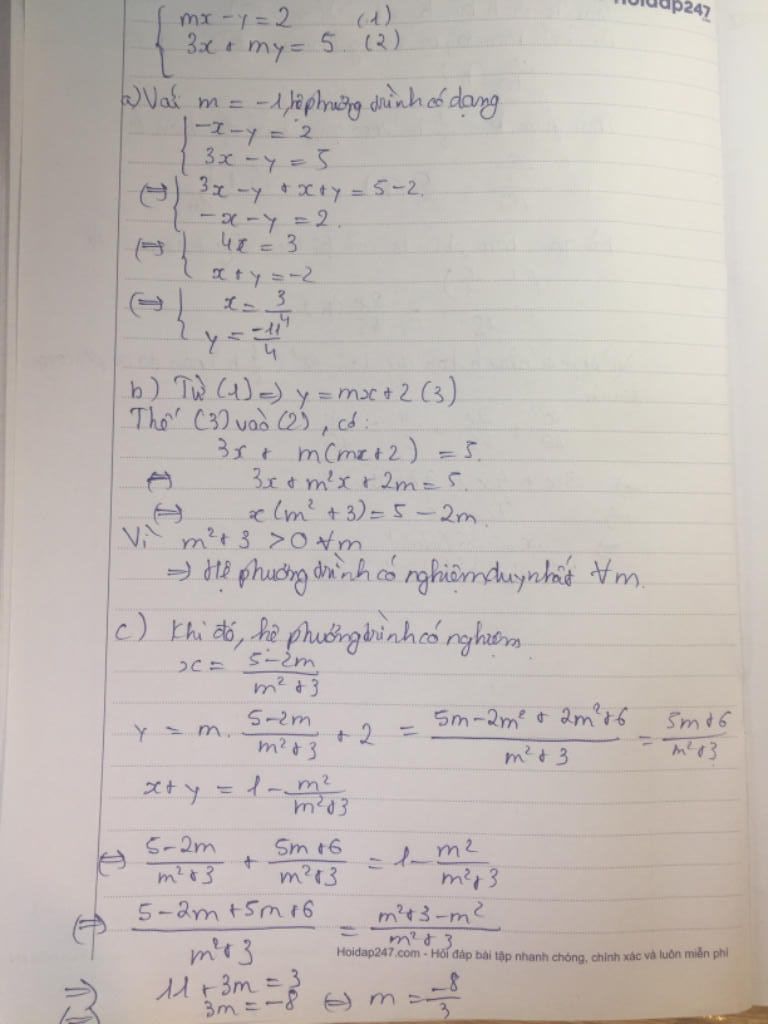 Hoidap247
mx - y = 2 (1)
3x + my = 5. (2)
a) Với m = -1, hệ phương trình có dạng
-x - y = 2
3x - y = 5
(=) 3x - y + x + y = 5 - 2.
-x - y = 2.
(=) 4x = 3
x + y = -2
(=) x = 3/4
y = -11/4
b) Từ (1) => y = mx + 2 (3)
Thế (3) vào (2), có:
3x + m(mx + 2) = 5.
(=) 3x + m²x + 2m = 5.
(=) x(m² + 3) = 5 - 2m.
Vì m² + 3 > 0 ∀m
=> Hệ phương trình có nghiệm duy nhất ∀m.
c) Khi đó, hệ phương trình có nghiệm
x = (5 - 2m)/(m² + 3)
y = m. (5 - 2m)/(m² + 3) + 2 = (5m - 2m² + 2m² + 6)/(m² + 3) = (5m + 6)/(m² + 3)
x + y = 1 - m²/(m² + 3)
(=) (5 - 2m)/(m² + 3) + (5m + 6)/(m² + 3) = 1 - m²/(m² + 3)
(=) (5 - 2m + 5m + 6)/(m² + 3) = (m² + 3 - m²)/(m² + 3)
Hoidap247.com - Hỏi đáp bài tập nhanh chóng, chính xác và luôn miễn phí
=> 11 + 3m = 3
(=) 3m = -8 (=) m = -8/3